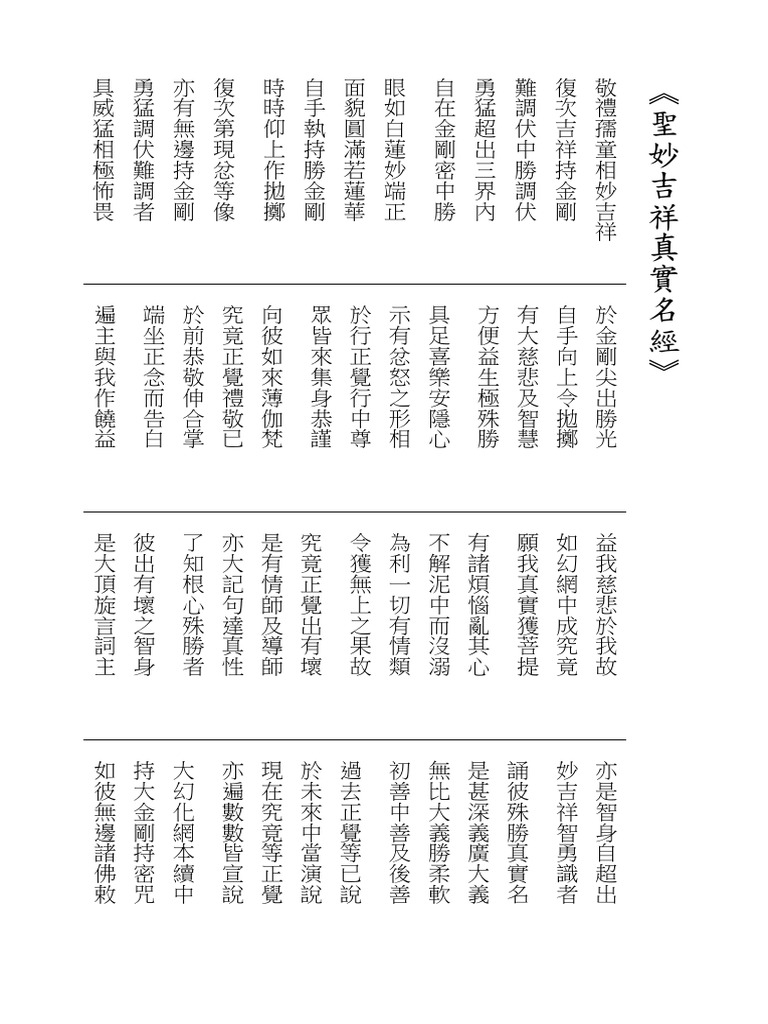 《聖妙吉祥真實名經》
敬禮孺童相妙吉祥
復次吉祥持金剛
難調伏中勝調伏
勇猛超出三界內
自在金剛密中勝
眼如白蓮妙端正
面貌圓滿若蓮華
自手執持勝金剛
時時仰上作拋擲
復次第現忿等像
亦有無邊持金剛
勇猛調伏難調者
具威猛相極怖畏
於金剛尖出勝光
自手向上令拋擲
有大慈悲及智慧
方便益生極殊勝
具足喜樂安隱心
示有忿怒之形相
於行正覺行中尊
眾皆來集身恭謹
向彼如來薄伽梵
究竟正覺禮敬已
於前恭敬伸合掌
端坐正念而告白
遍主與我作饒益
益我慈悲於我故
如幻網中成究竟
願我真實獲菩提
有諸煩惱亂其心
不解泥中而沒溺
為利一切有情類
令獲無上之果故
究竟正覺出有壞
是有情師及導師
亦大記句達真性
了知根心殊勝者
彼出有壞之智身
是大頂旋言詞主
亦是智身自超出
妙吉祥智勇識者
誦彼殊勝真實名
是甚深義廣大義
無比大義勝柔軟
初善中善及後善
過去正覺等已說
於未來中當演說
現在究竟等正覺
亦遍數數皆宣說
大幻化網本續中
持大金剛持密咒
如彼無邊諸佛敕